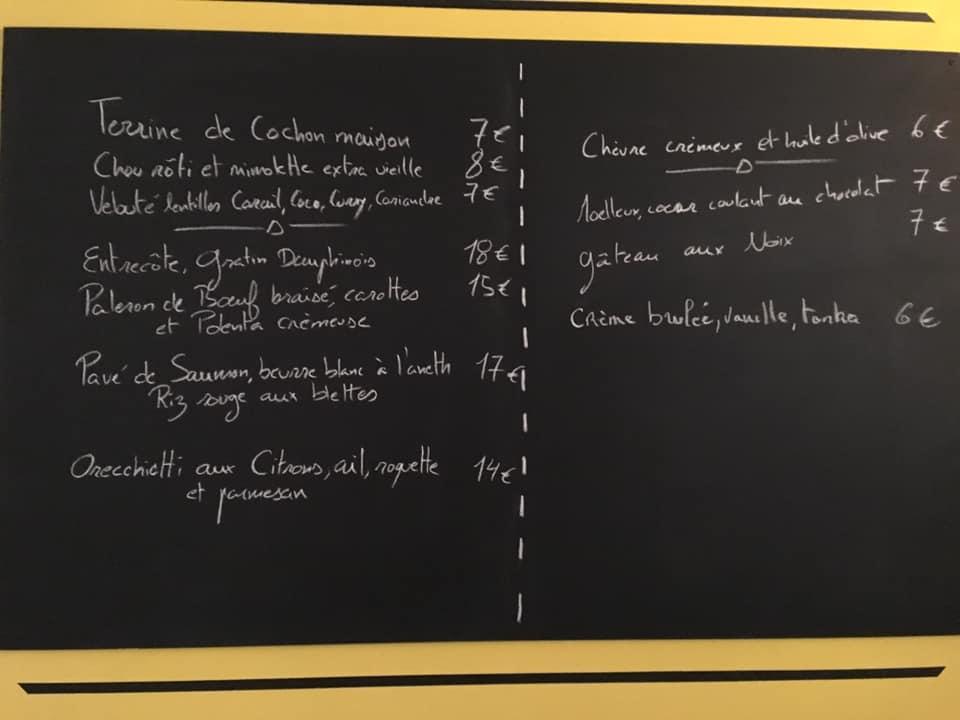 Terrine de Cochon maison 7€
Chou rôti et mimolette extra vieille 8€
Velouté lentilles Corail, Coco, Curry, Coriandre 7€
Entrecôte, gratin Dauphinois 18€
Paleron de Bœuf braisé, carottes 15€
et Polenta crèmeuse
Pavé de Saumon, beurre blanc à l'aneth 17€
Riz rouge aux blettes
Orecchietti aux Citrons, ail, roquette 14€
et parmesan
Chèvre crémeux et huile d'olive 6€
Moelleux, coeur coulant au chocolat 7€
gâteau aux Noix 7€
Crème brulée, vanille, tonka 6€